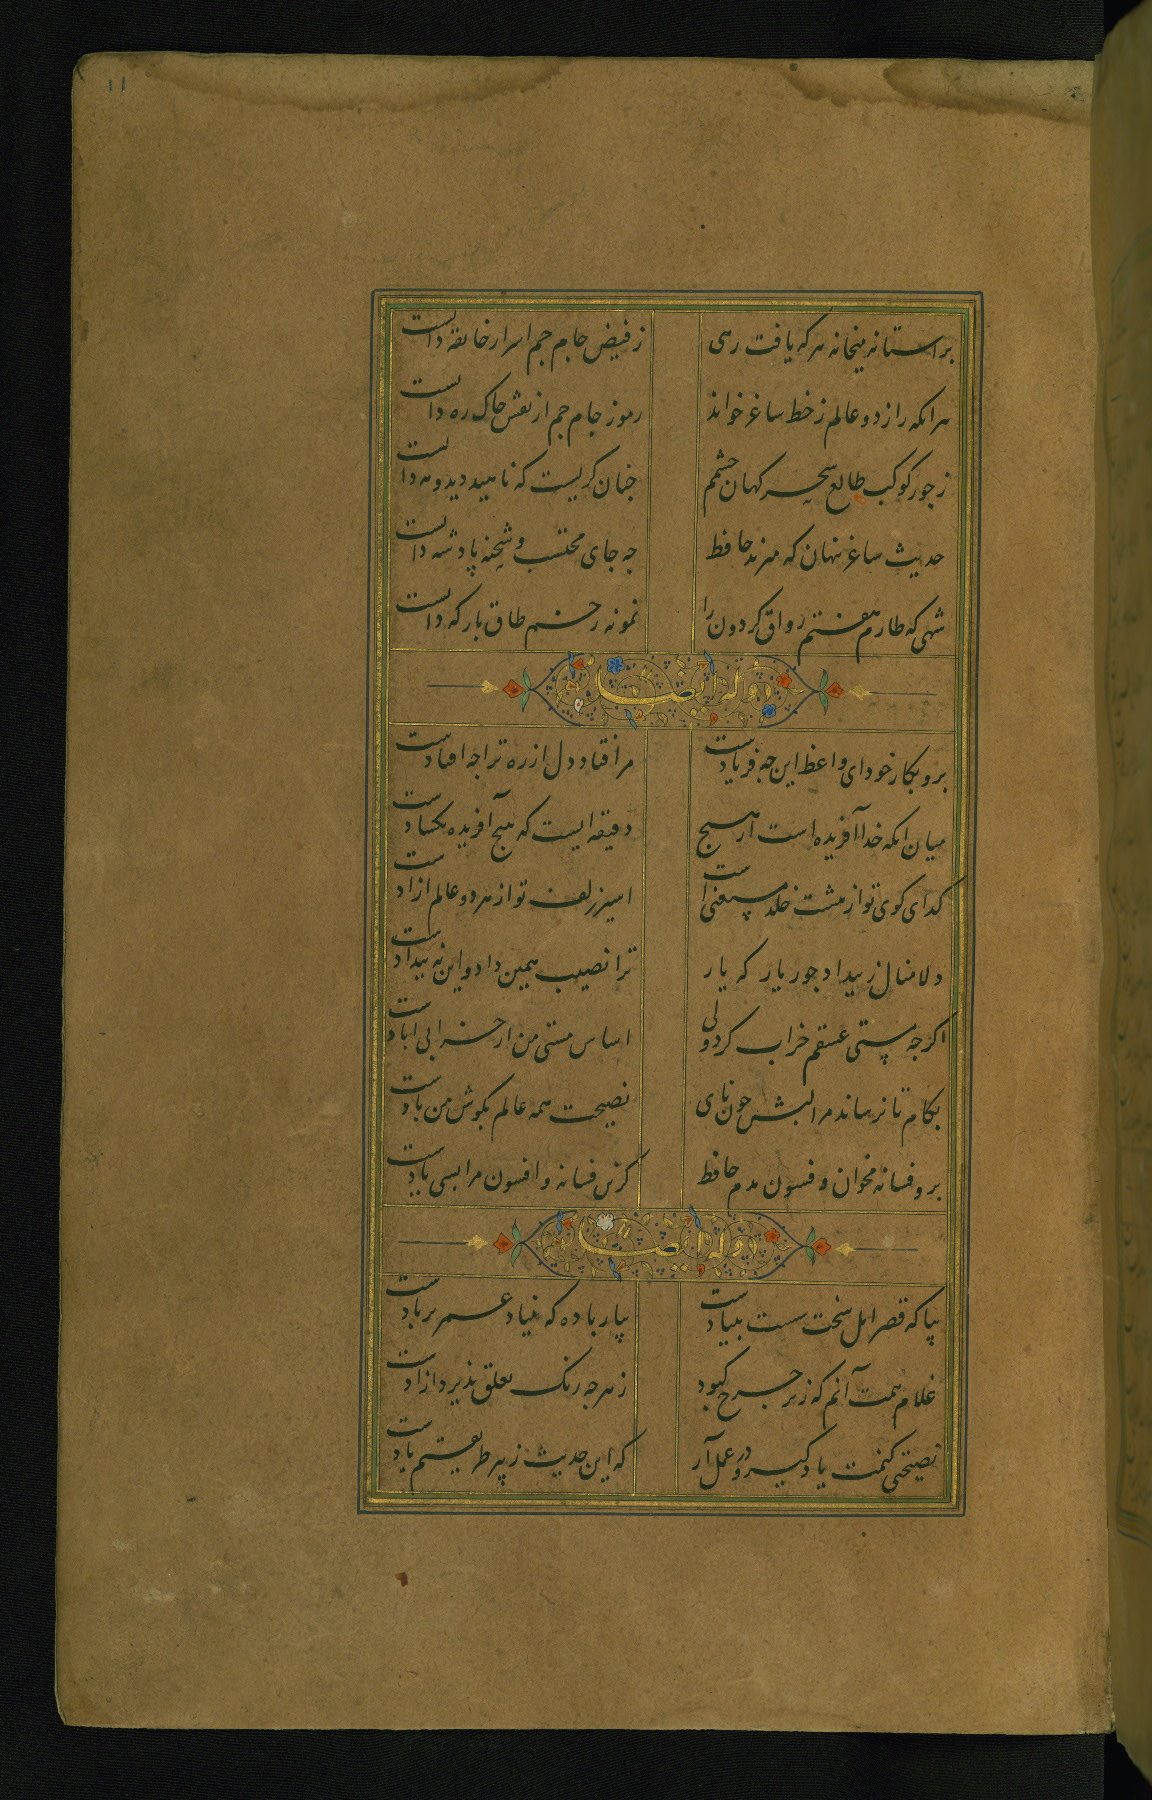 ۱۱
بر استانه میخانه هر که یافت رهی ز فیض جام جم اسرار خانقه دانست
هر انکه راز دو عالم ز خط ساغر خواند رموز جام جم از نقش خاک ره دانست
ز جور کوکب طالع سحرکهان چشمم جنان کریست که ناهید دید و مه دانست
حدیث ساغر نهان که میزند حافظ جه جای محتسب و شحنه پادشه دانست
شهی که طارم هفتم رواق کردون را نمونه ز خم طاق بارکه دانست
و له ایضا
برو بکار خود ای واعظ این جه فریادست مرا فتاد دل از ره ترا جه افتادست
میان انکه خدا آفریده است از هیچ دقیقه ایست که هیچ آفریده نکشادست
کدای کوی تو از هشت خلد مستغنی است اسیر زلف تو از هر دو عالم ازادست
دلا منال ز بیداد جور یار که یار ترا نصیب همین داد و این نه بیدادست
اکر جه مستی عشقم خراب کرد ولی اساس هستی من از خرابی ابادست
بکام تا نرساند مرا لبش جون نای نصیحت همه عالم بکوش من بادست
برو فسانه مخوان و فسون مدم حافظ کزین فسانه و افسون مرا بسی یادست
و له ایضا
بیا که قصر امل سخت سست بنیادست بیار باده که بنیاد عمر بر بادست
غلام همت آنم که زیر جرخ کبود ز هر جه رنک تعلق پذیرد ازادست
نصیحتی کنمت یاد کیر و در عمل آر که این حدیث ز پیر طریقتم یادست